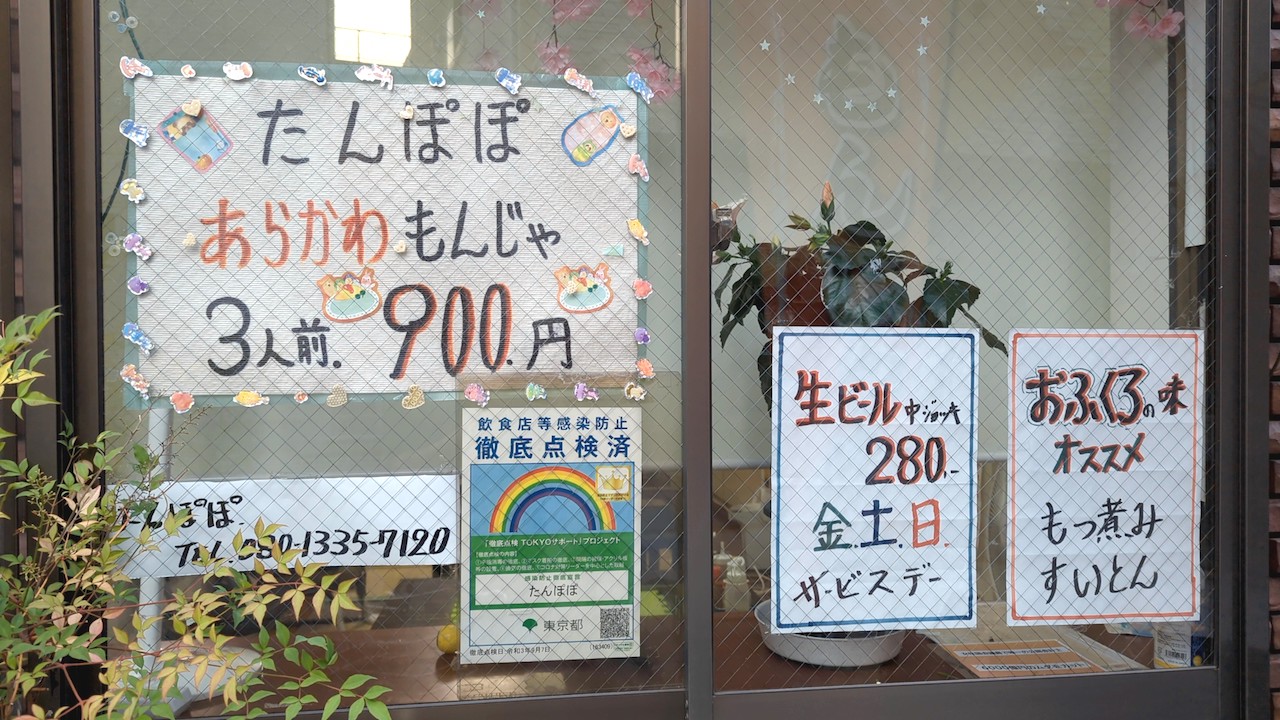 たんぽぽ
あらかわもんじゃ
3人前. 900.円
たんぽぽ.
TEL.080-1335-7120
飲食店等感染防止
徹底点検済
「徹底点検 TOKYOサポート」プロジェクト
感染防止徹底宣言
たんぽぽ
東京都
生ビール中ジョッキ
280.-
金.土.日.
サービスデー
おふくろの味
オススメ
もつ煮み
すいとん